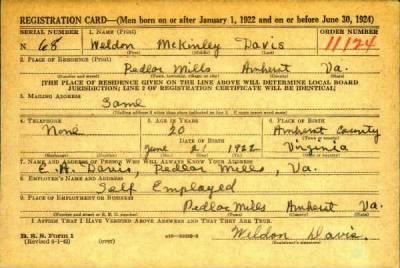 REGISTRATION CARD—(Men born on or after January 1, 1922 and on or before June 30, 1924)
SERIAL NUMBER 1. NAME (Print) ORDER NUMBER
N 68 Weldon McKinley Davis 11124
(First) (Middle) (Last)
2. PLACE OF RESIDENCE (Print)
Pedlar Mills Amherst Va.
(Number and street) (Town, township, village or city) (County) (State)
[THE PLACE OF RESIDENCE GIVEN ON THE LINE ABOVE WILL DETERMINE LOCAL BOARD
JURISDICTION; LINE 2 OF REGISTRATION CERTIFICATE WILL BE IDENTICAL]
3. MAILING ADDRESS
Same
[Mailing address if other than place indicated on line 2. If same insert word same]
4. TELEPHONE 5. AGE IN YEARS 6. PLACE OF BIRTH
None 20 Amherst County
DATE OF BIRTH
June 21 1922 Virginia
(Exchange) (Number) (Mo.) (Day) (Yr.) (State or country)
7. NAME AND ADDRESS OF PERSON WHO WILL ALWAYS KNOW YOUR ADDRESS
E. H. Davis, Pedlar Mills, Va.
8. EMPLOYER'S NAME AND ADDRESS
Self Employed
9. PLACE OF EMPLOYMENT OR BUSINESS
Pedlar Mills Amherst Va.
(Number and street or R. F. D. number) (Town) (County) (State)
I AFFIRM THAT I HAVE VERIFIED ABOVE ANSWERS AND THAT THEY ARE TRUE.
D. S. S. Form 1
(Revised 6-1-42) (over) Weldon Davis
(Registrant's signature)